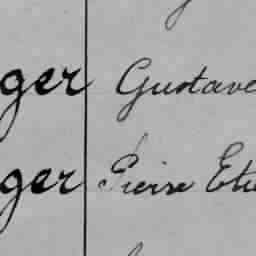 ger Gustave
ger Pierre Etie